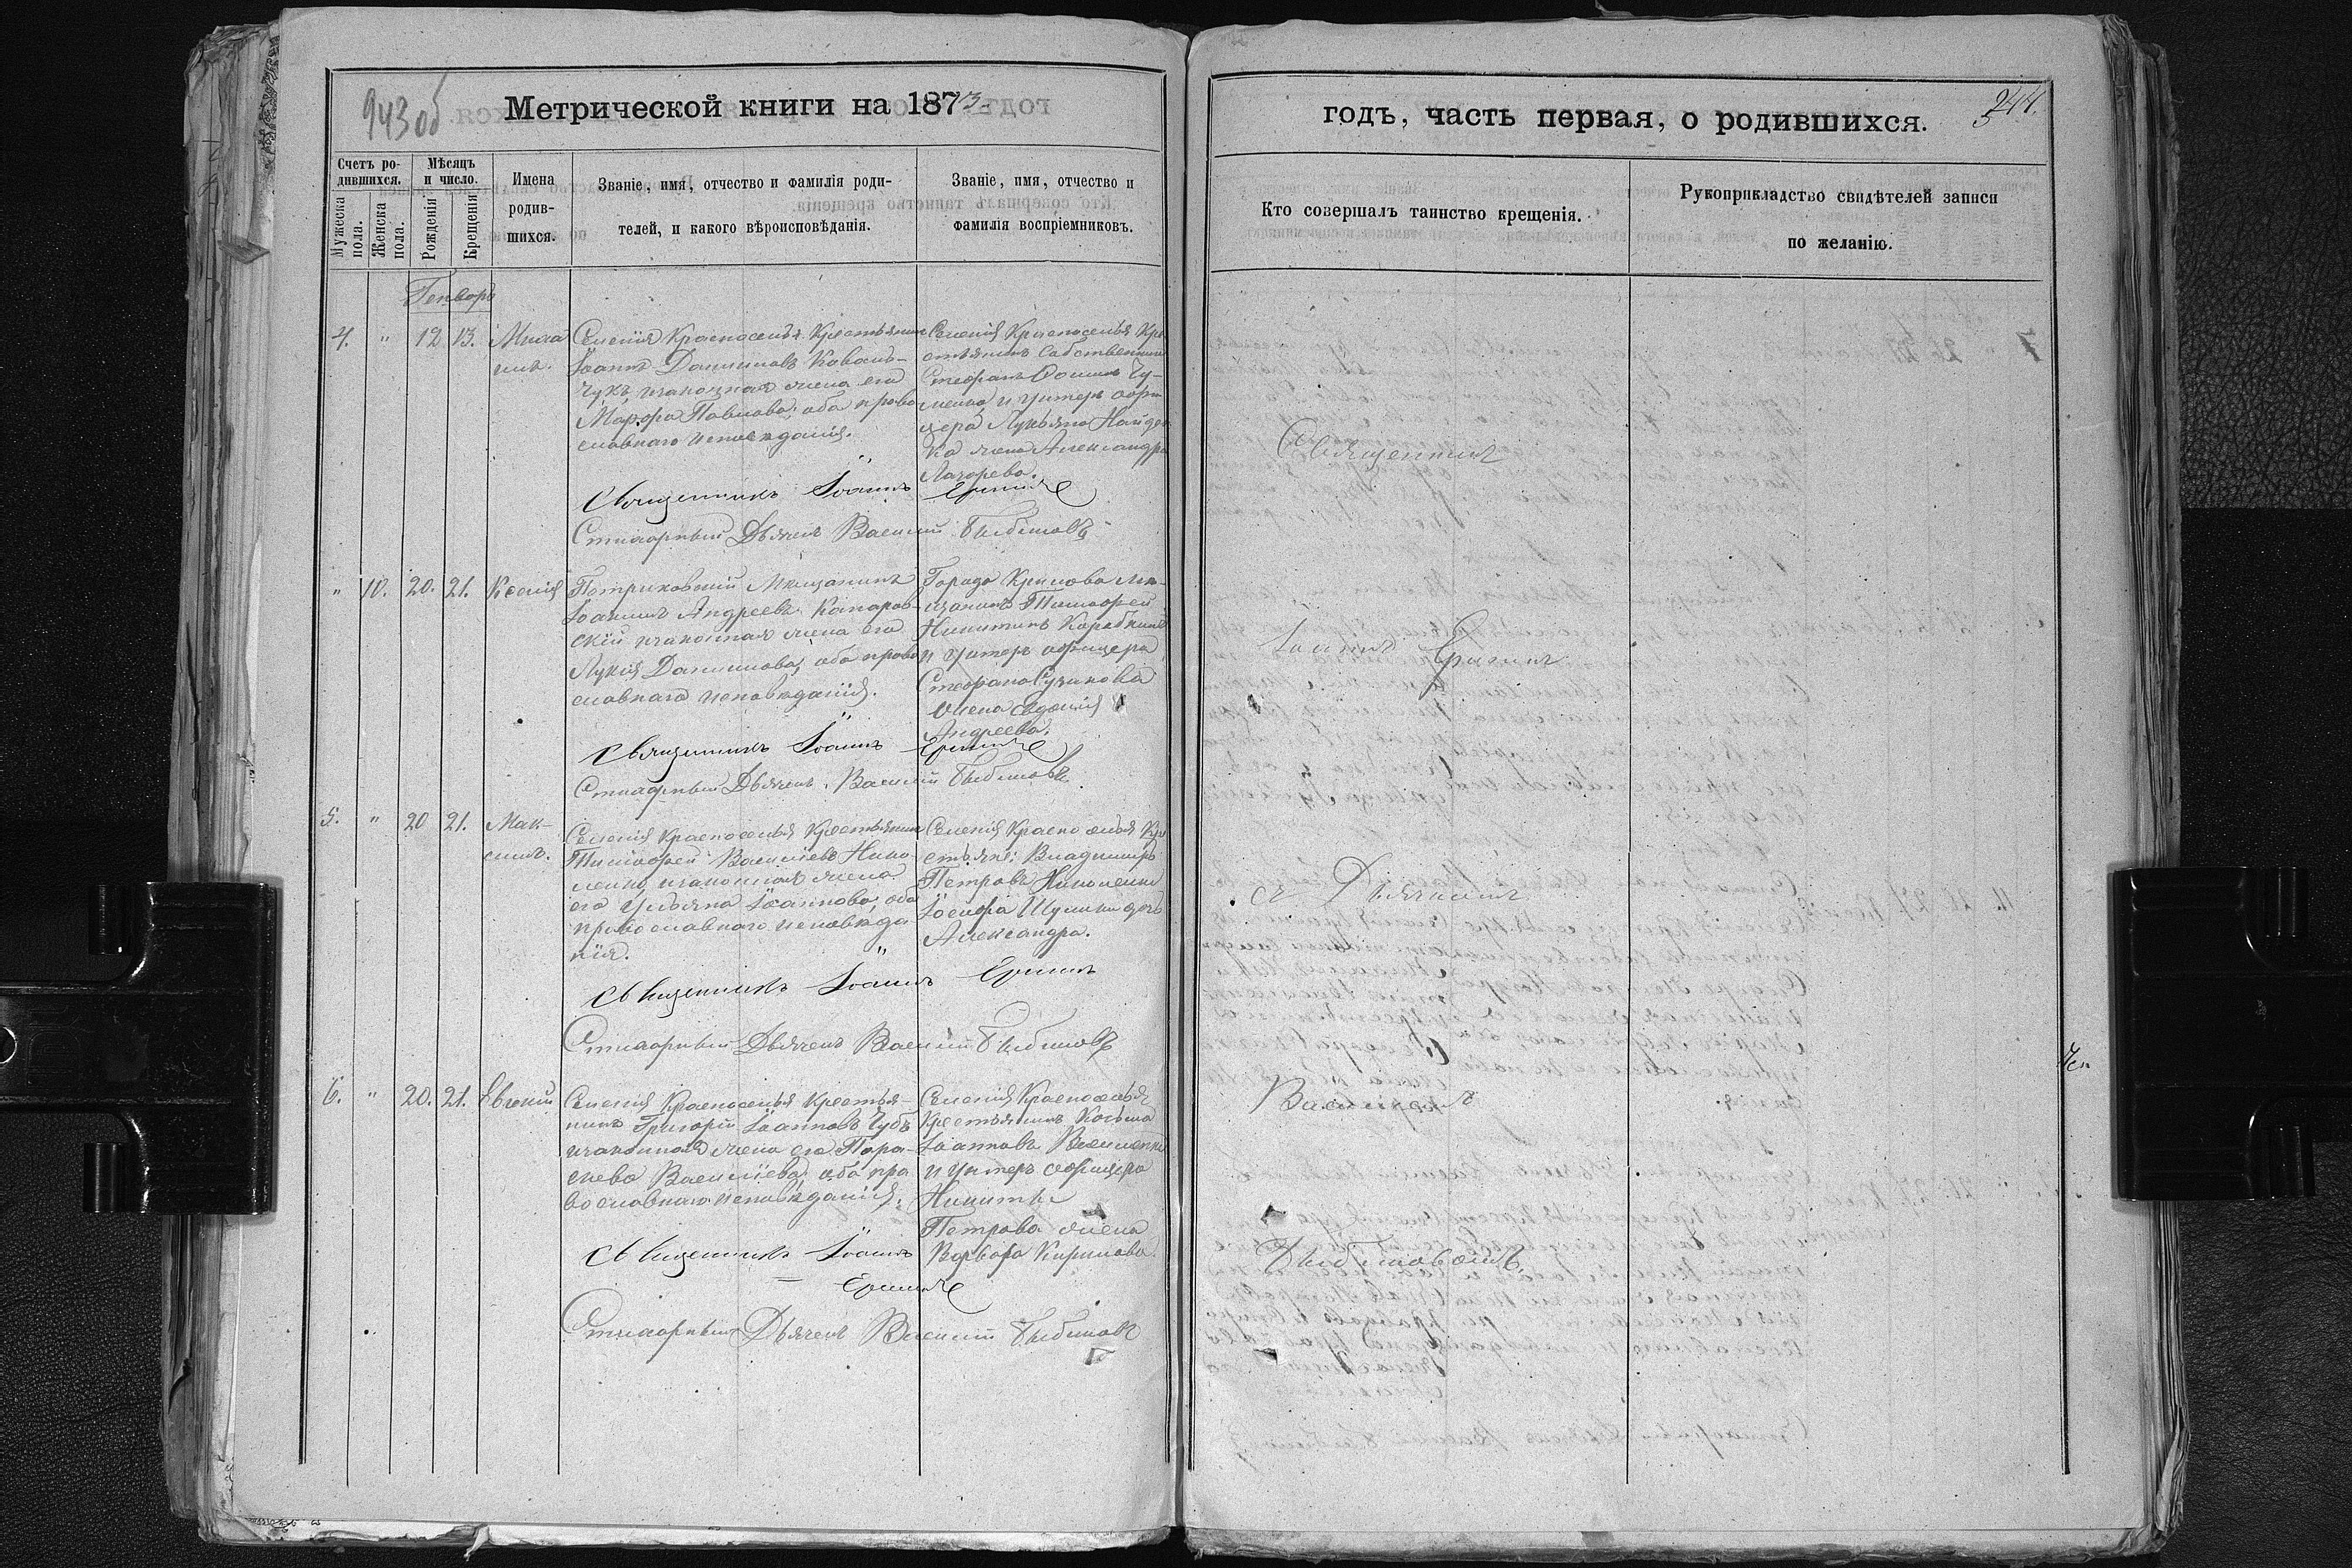 943 об
Метрической книги на 1873
годъ, часть первая, о родившихся.
244.
Счетъ родившихся.
Мужеска пола.
Женска пола.
Мѣсяцъ и число.
Рожденія
Крещенія
Имена родившихся.
Званіе, имя, отчество и фамилія родителей, и какого вѣроисповѣданія.
Званіе, имя, отчество и фамилія воспріемниковъ.
Кто совершалъ таинство крещенія.
Рукоприкладство свидѣтелей записи по желанію.
Генварь
4. " 12 13. Михаилъ.
Селенія Красноселья Крестьянинъ
Іоаннъ Даниловъ Коваль-
чукъ изаконная жена его
Марфа Павлова, оба право
славнаго исповѣданія.
Селенія Красноселья Кре
стьянинъ Собственникъ
Стефанъ
и Унтеръ офи
цера Лукьяна Найден
ка жена Александра
Лазарева.
Священникъ Іоаннъ
Стихарный Дьячекъ Василій
" 10. 20. 21. Ксенія
Мещанинъ
Іоакимъ Андреевъ
скій изаконная жена его
Лукія Данилова, оба право
славнаго исповѣданія.
Города Крилова Мѣ-
щанинъ Тимофей
Никитинъ
и Унтеръ офицера
Стефана
жена Евдокія
Андреева.
Священникъ Іоаннъ
Стихарный Дьячекъ Василій
5. " 20 21. Мак-
симъ.
Селенія Красноселья Крестьянинъ
Тимофей Васильевъ Нико
ленко изаконная жена
его Ульяна Іоаннова, оба
православнаго исповѣда
нія.
Селенія Красноселья Кре
стьяне: Владимиръ
Петровъ Николенко
Іосифа дочь
Александра.
Священникъ Іоаннъ
Стихарный Дьячекъ Василій
6. " 20. 21. Евгеній
Селенія Красноселья Крестья-
нинъ Григорій Іоанновъ Чубъ
изаконная жена его Пара-
скева Васильева, оба пра
вославнаго исповѣданія.
Селенія Красноселья
Крестьянинъ Косьма
Іоанновъ Василенко
и Унтеръ офицера
Никиты
Петрова жена
Варвара Кирилова.
Священникъ Іоаннъ
Стихарный Дьячекъ Василій
Священникъ
Іоаннъ
съ Дьячкомъ
Василіемъ